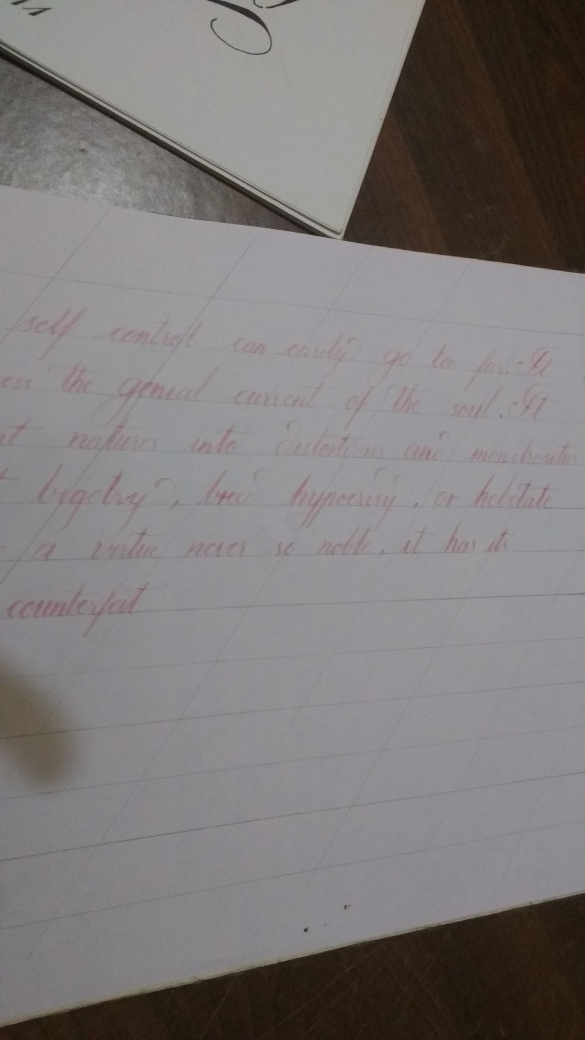 self control can easily go too far. It
ess the genial current of the soul. It
nt natures into distortions and monstrosities
t bigotry, breed hypocrisy, or hebetate
a virtue never so noble, it has its
counterfeit